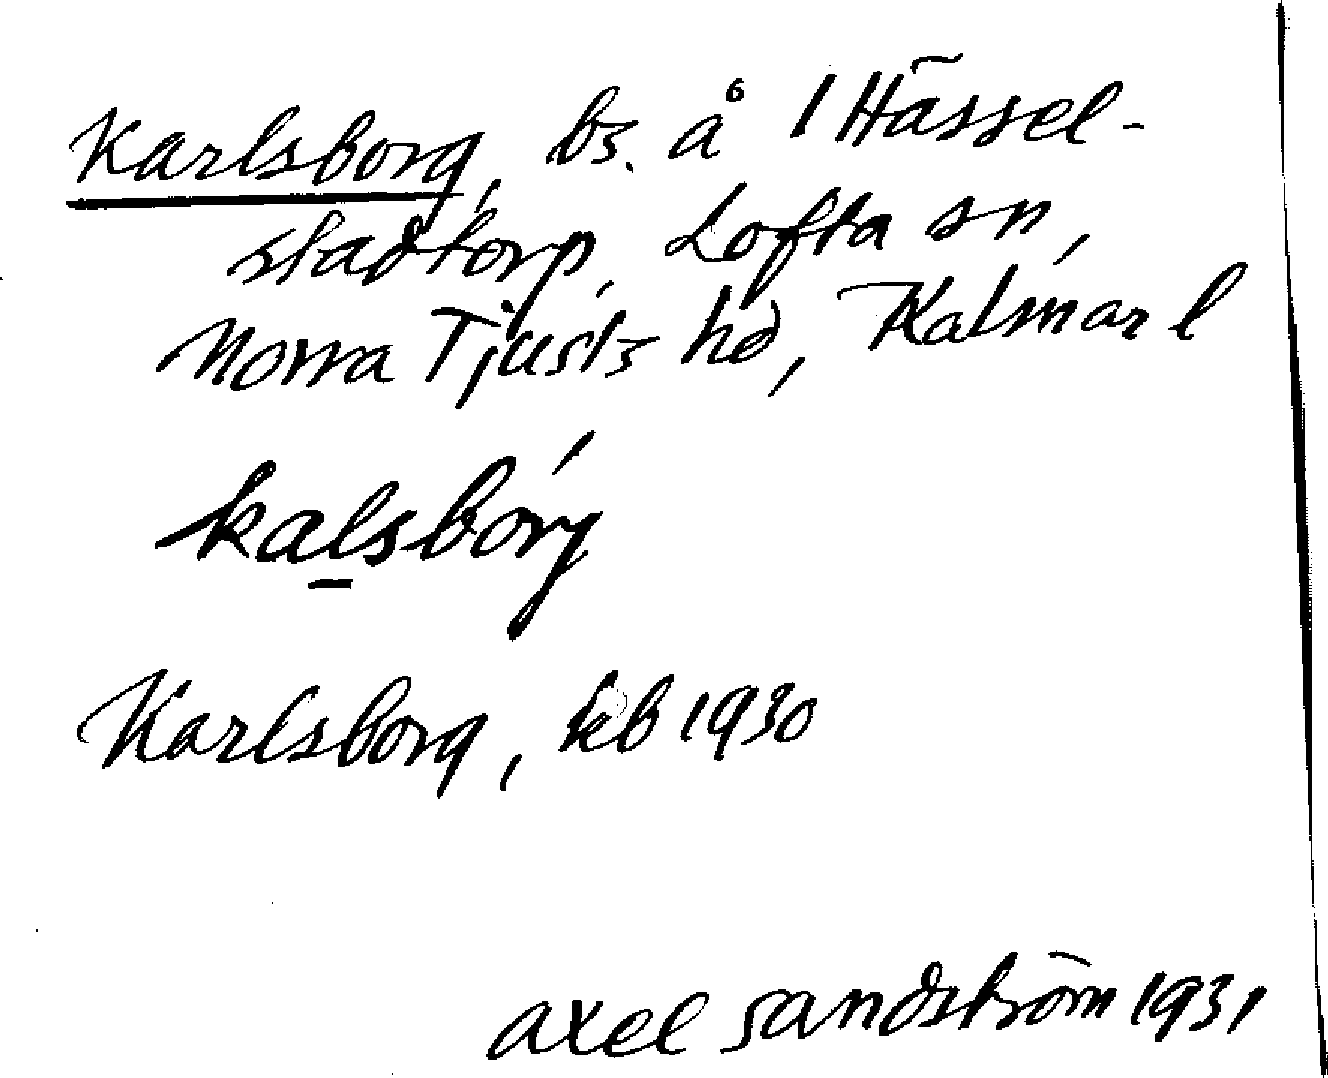 Karlsborg, bs. å 1 Hässel-
stadtorp, Lofta sn,
Norra Tjusts hd, Kalmar l
kalsbórj
Karlsborg, kb 1930
Axel Sandström 1931